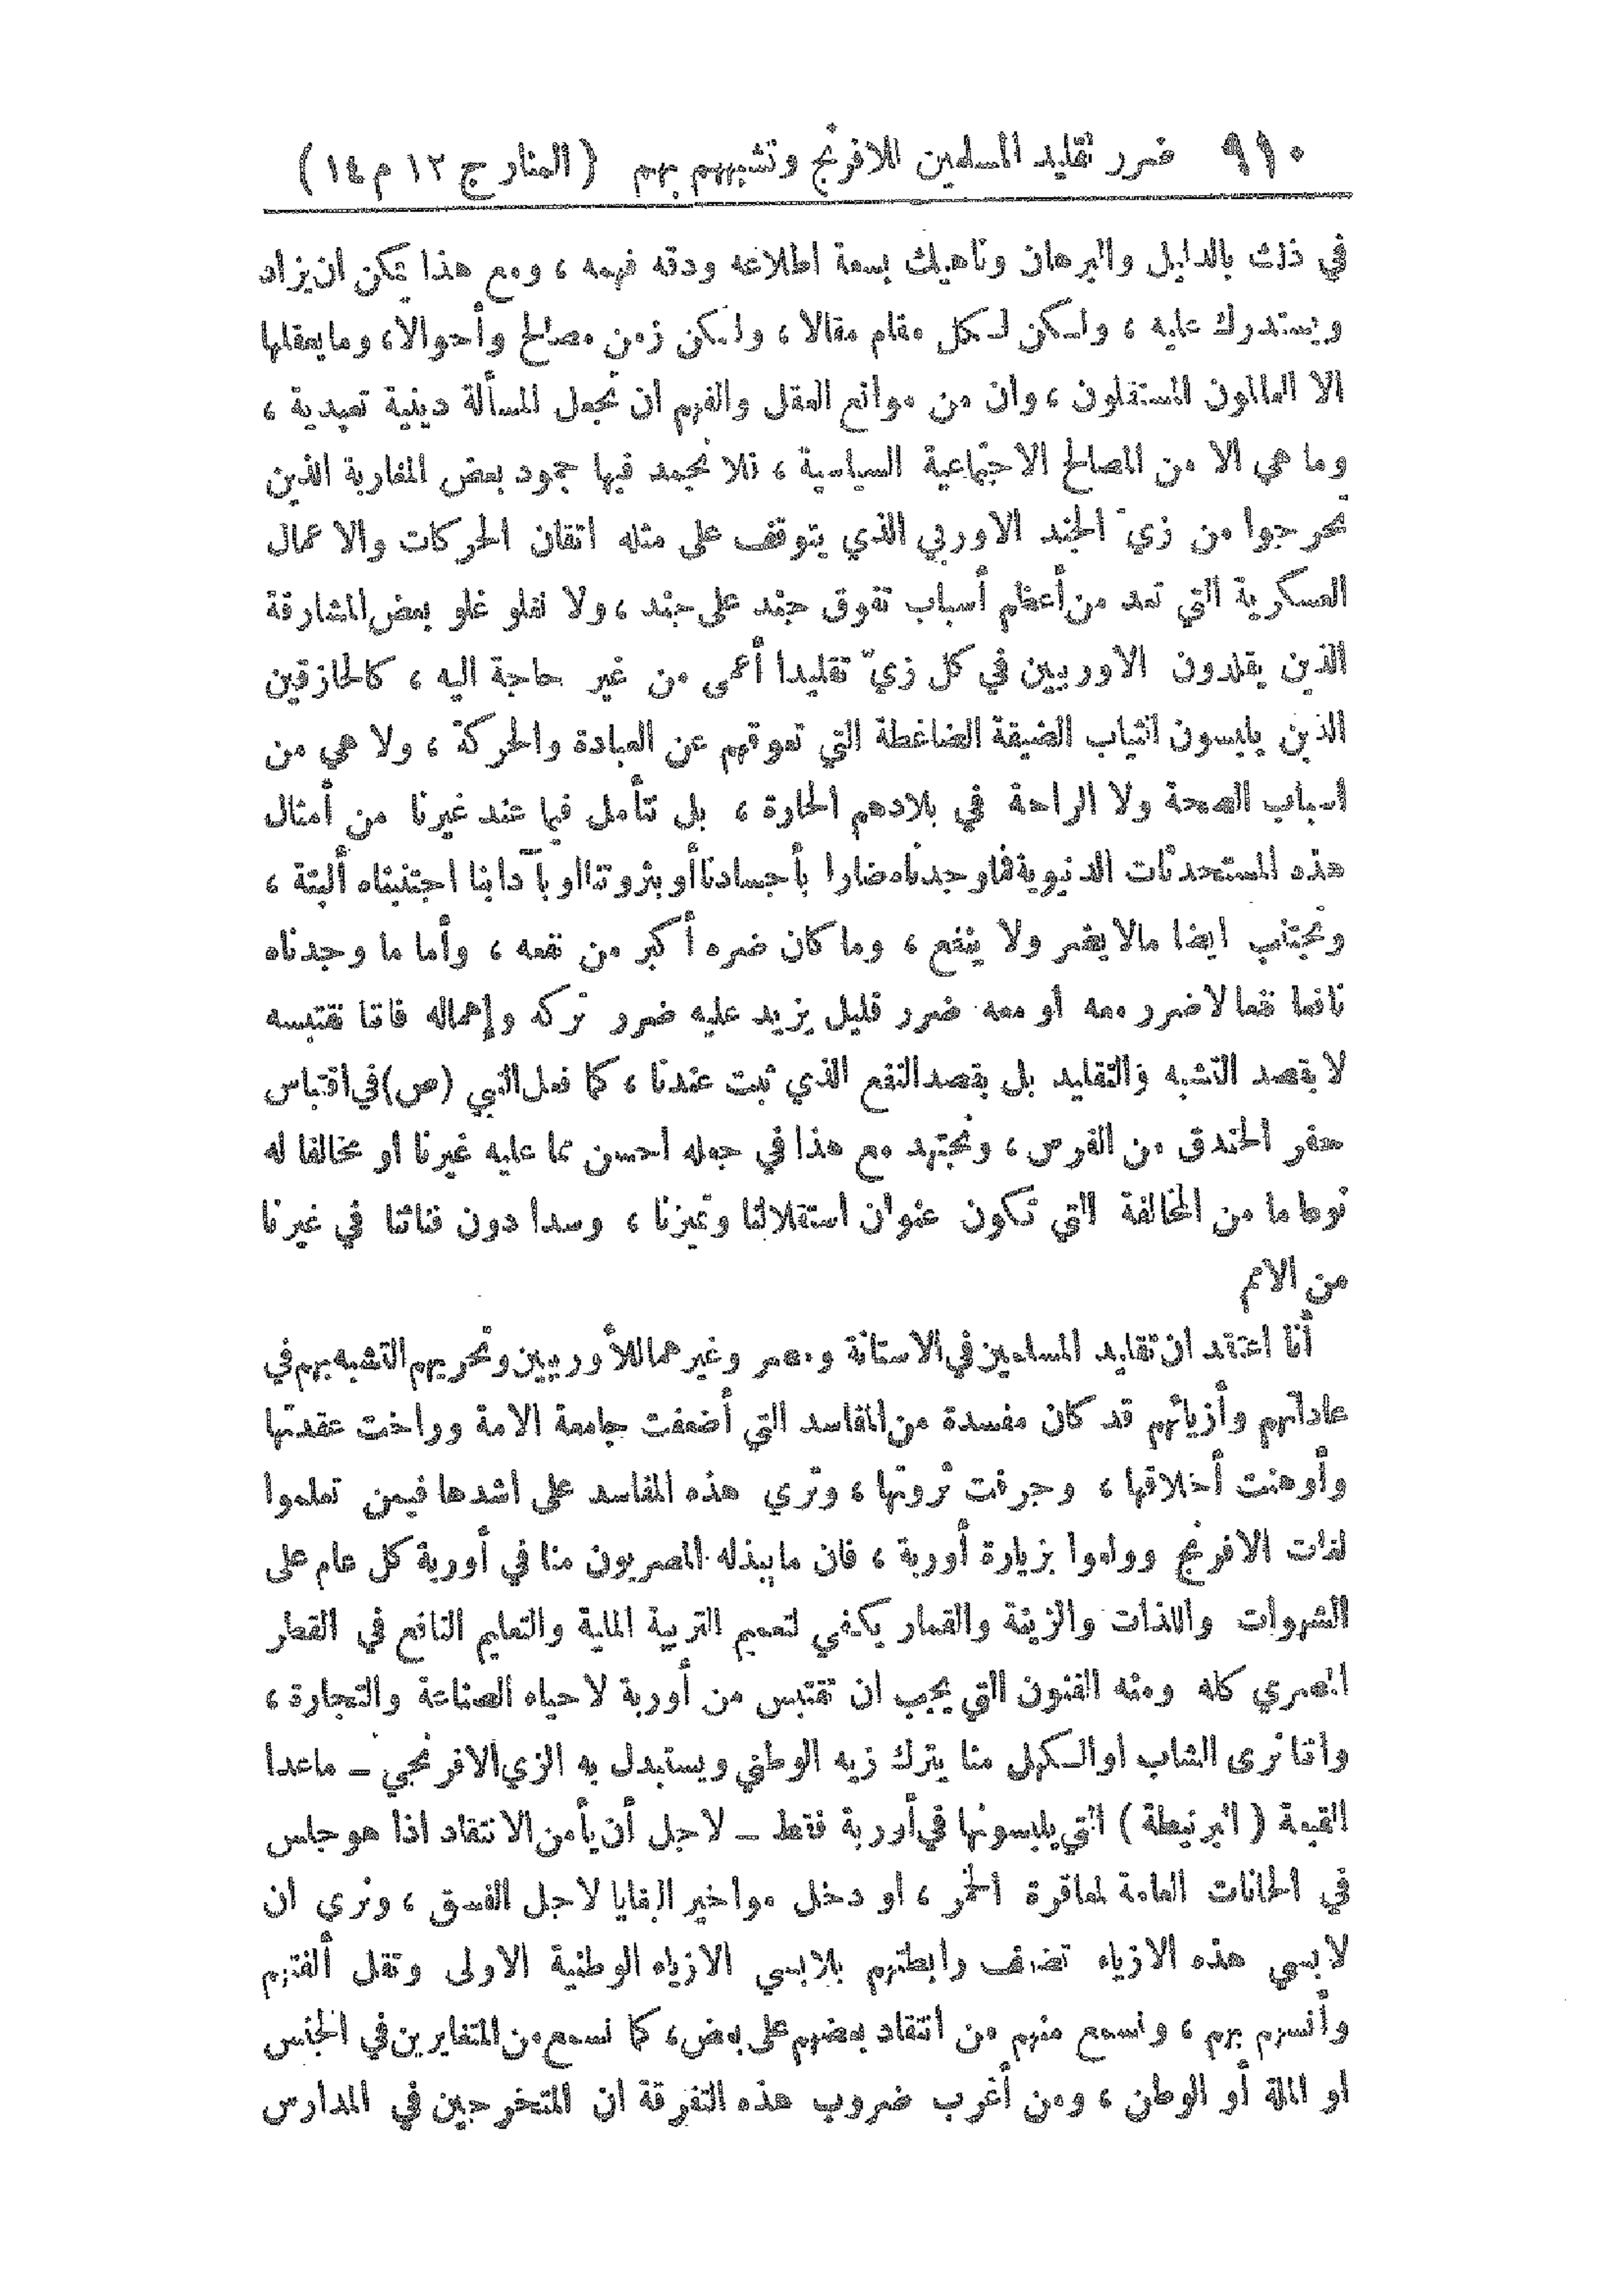 ٩١٠ ضرر تقليد المسلمين للافرنج وتشبههم بهم ( المنار ج ١٢ م ١٤ )
في ذلك بالدليل والبرهان وناهيك بسعة اطلاعه ودقه فهمه ، ومع هذا يمكن ان يزاد
ويستدرك عليه ، ولكن لكل مقام مقالا ، ولكن زمن مصالح وأحوالا ، وما يعقلها
الا العالمون المستقلون ، وان من موانع العقل والفهم ان نجعل المسألة دينية تعبدية ،
وما هي الا من المصالح الاجتماعية السياسية ، فلا نجمد فيها جمود بعض المغاربة الذين
تحرجوا من زيّ الجند الاوربي الذي يتوقف على مثله اتقان الحركات والاعمال
العسكرية التي تعد من أعظم أسباب تفوق جند على جند ، ولا نغلو غلو بعض المشارقة
الذين يقلدون الاوربيين في كل زيّ تقليدا أعمى من غير حاجة اليه ، كالحازقين
الذين يلبسون الثياب الضيقة الضاغطة التي تعوقهم عن العبادة والحركة ، ولا هي من
اسباب الصحة ولا الراحة في بلادهم الحارة ، بل نتأمل فيما عند غيرنا من أمثال
هذه المستحدثات الدنيوية فما وجدناه ضارا بأجسادنا أو بثروتنا او بآدابنا اجتنبناه ألبتة ،
ونجتنب ايضا مالا يضر ولا ينفع ، وما كان ضره أكبر من نفعه ، وأما ما وجدناه
نافعا نفعا لا ضرر معه أو معه ضرر قليل يزيد عليه ضرر تركه وإهماله فاننا نقتبسه
لا بقصد التشبه والتقليد بل بقصد النفع الذي ثبت عندنا ، كما فعل النبي (ص) في اقتباس
حفر الخندق من الفرس ، ونجتهد مع هذا في جعله احسن مما عليه غيرنا او مخالفا له
نوعا ما من المخالفة التي تكون عنوان استقلالنا وتميزنا ، وسدا دون فنائنا في غيرنا
من الامم
أنا اعتقد ان تقليد المسلمين في الاستانة ومصر وغيرهما للأوربيين وتحريهم التشبه بهم في
عاداتهم وأزيائهم قد كان مفسدة من المفاسد التي أضعفت جامعة الامة وراخت عقدتها
وأوهنت أخلاقها ، وجرفت ثروتها ، وترى هذه المفاسد على اشدها فيمن تعلموا
لغات الافرنج وولعوا بزيارة أوربة ، فان ما يبذله المصريون منا في أوربة كل عام على
الشهوات واللذات والزينة والقمار يكفي لتعميم التربية الملية والتعليم النافع في القطر
المصري كله ومنه الفنون التي يجب ان تقتبس من أوربة لاحياء الصناعة والتجارة ،
واننا نرى الشاب او الكهل منا يترك زيه الوطني ويستبدل به الزي الافرنجي ــ ماعدا
القبعة ( البرنيطة ) التي يلبسونها في أوربة فقط ــ لاجل أن يأمن الانتقاد اذا هو جلس
في الحانات العامة لمعاقرة الخمر ، او دخل مواخير البغايا لاجل الفسق ، ونرى ان
لابسي هذه الازياء تضعف رابطتهم بلابسي الازياء الوطنية الاولى وتقل ألفتهم
وأنسهم بهم ، ونسمع منهم من انتقاد بعضهم على بعض ، كما نسمع من المتغايرين في الجنس
او الملة أو الوطن ، ومن أغرب ضروب هذه التفرقة ان المتخرجين في المدارس